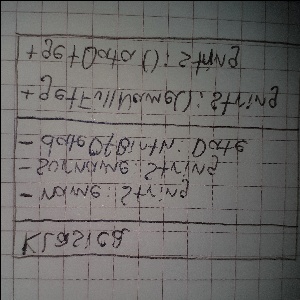 Klasica
- name: String
- surname: String
- dateOfBirth: Date
+ getFullName(): String
+ getData(): String